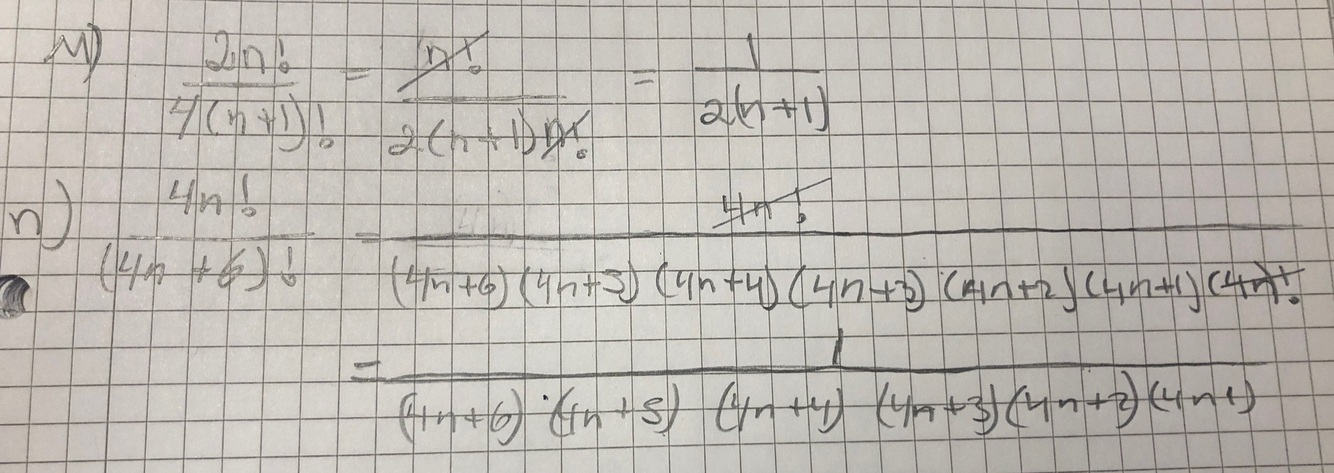 M) 2n! / 4(n+1)! = n! / 2(n+1)n! = 1 / 2(n+1)
n) 4n! / (4n+6)! = 4n! / (4n+6)(4n+5)(4n+4)(4n+3)(4n+2)(4n+1)(4n)!
= 1 / (4n+6)·(4n+5)(4n+4)(4n+3)(4n+2)(4n+1)